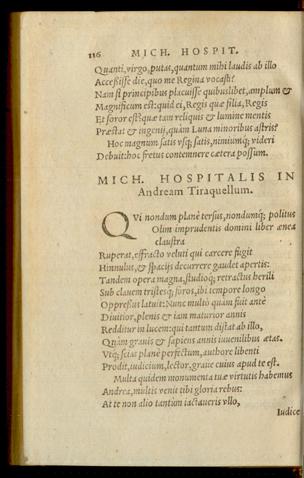 116 MICH. HOSPIT.
Quanti, virgo, putas, quantum mihi laudis ab illo
Accessisse die, quo me Regina vocasti?
Nam si principibus placuisse quibuslibet, amplum &
Magnificum est: quid ei, Regis quæ filia, Regis
Et soror est? quæ tam reliquis & lumine mentis
Præstat & ingenij, quàm Luna minoribus astris?
Hoc magnum satis vsq; satis, nimiumq; videri
Debuit: hoc fretus contemnere cætera possum.
MICH. HOSPITALIS IN
Andream Tiraquellum.
QVi nondum planè tersus, nondumq; politus
Olim imprudentis domini liber ænea
claustra
Ruperat, effracto veluti qui carcere fugit
Hinnulus, & spacijs decurrere gaudet apertis:
Tandem opera magna, studioq; retractus herili
Sub clauem tristesq; foros, ibi tempore longo
Oppressus latuit: Nunc multò quàm fuit antè
Diuitior, plenis & iam maturior annis
Redditur in lucem: qui tantum distat ab illo,
Quàm grauis & sapiens annis iuuenilibus ætas.
Vtq; scias planè perfectum, authore libenti
Prodit, iudicium, lector, graue cuius apud te est.
Multa quidem monumenta tuæ virtutis habemus
Andrea, multis venit tibi gloria rebus:
At te non alio tantùm iactaueris vllo,
Iudice